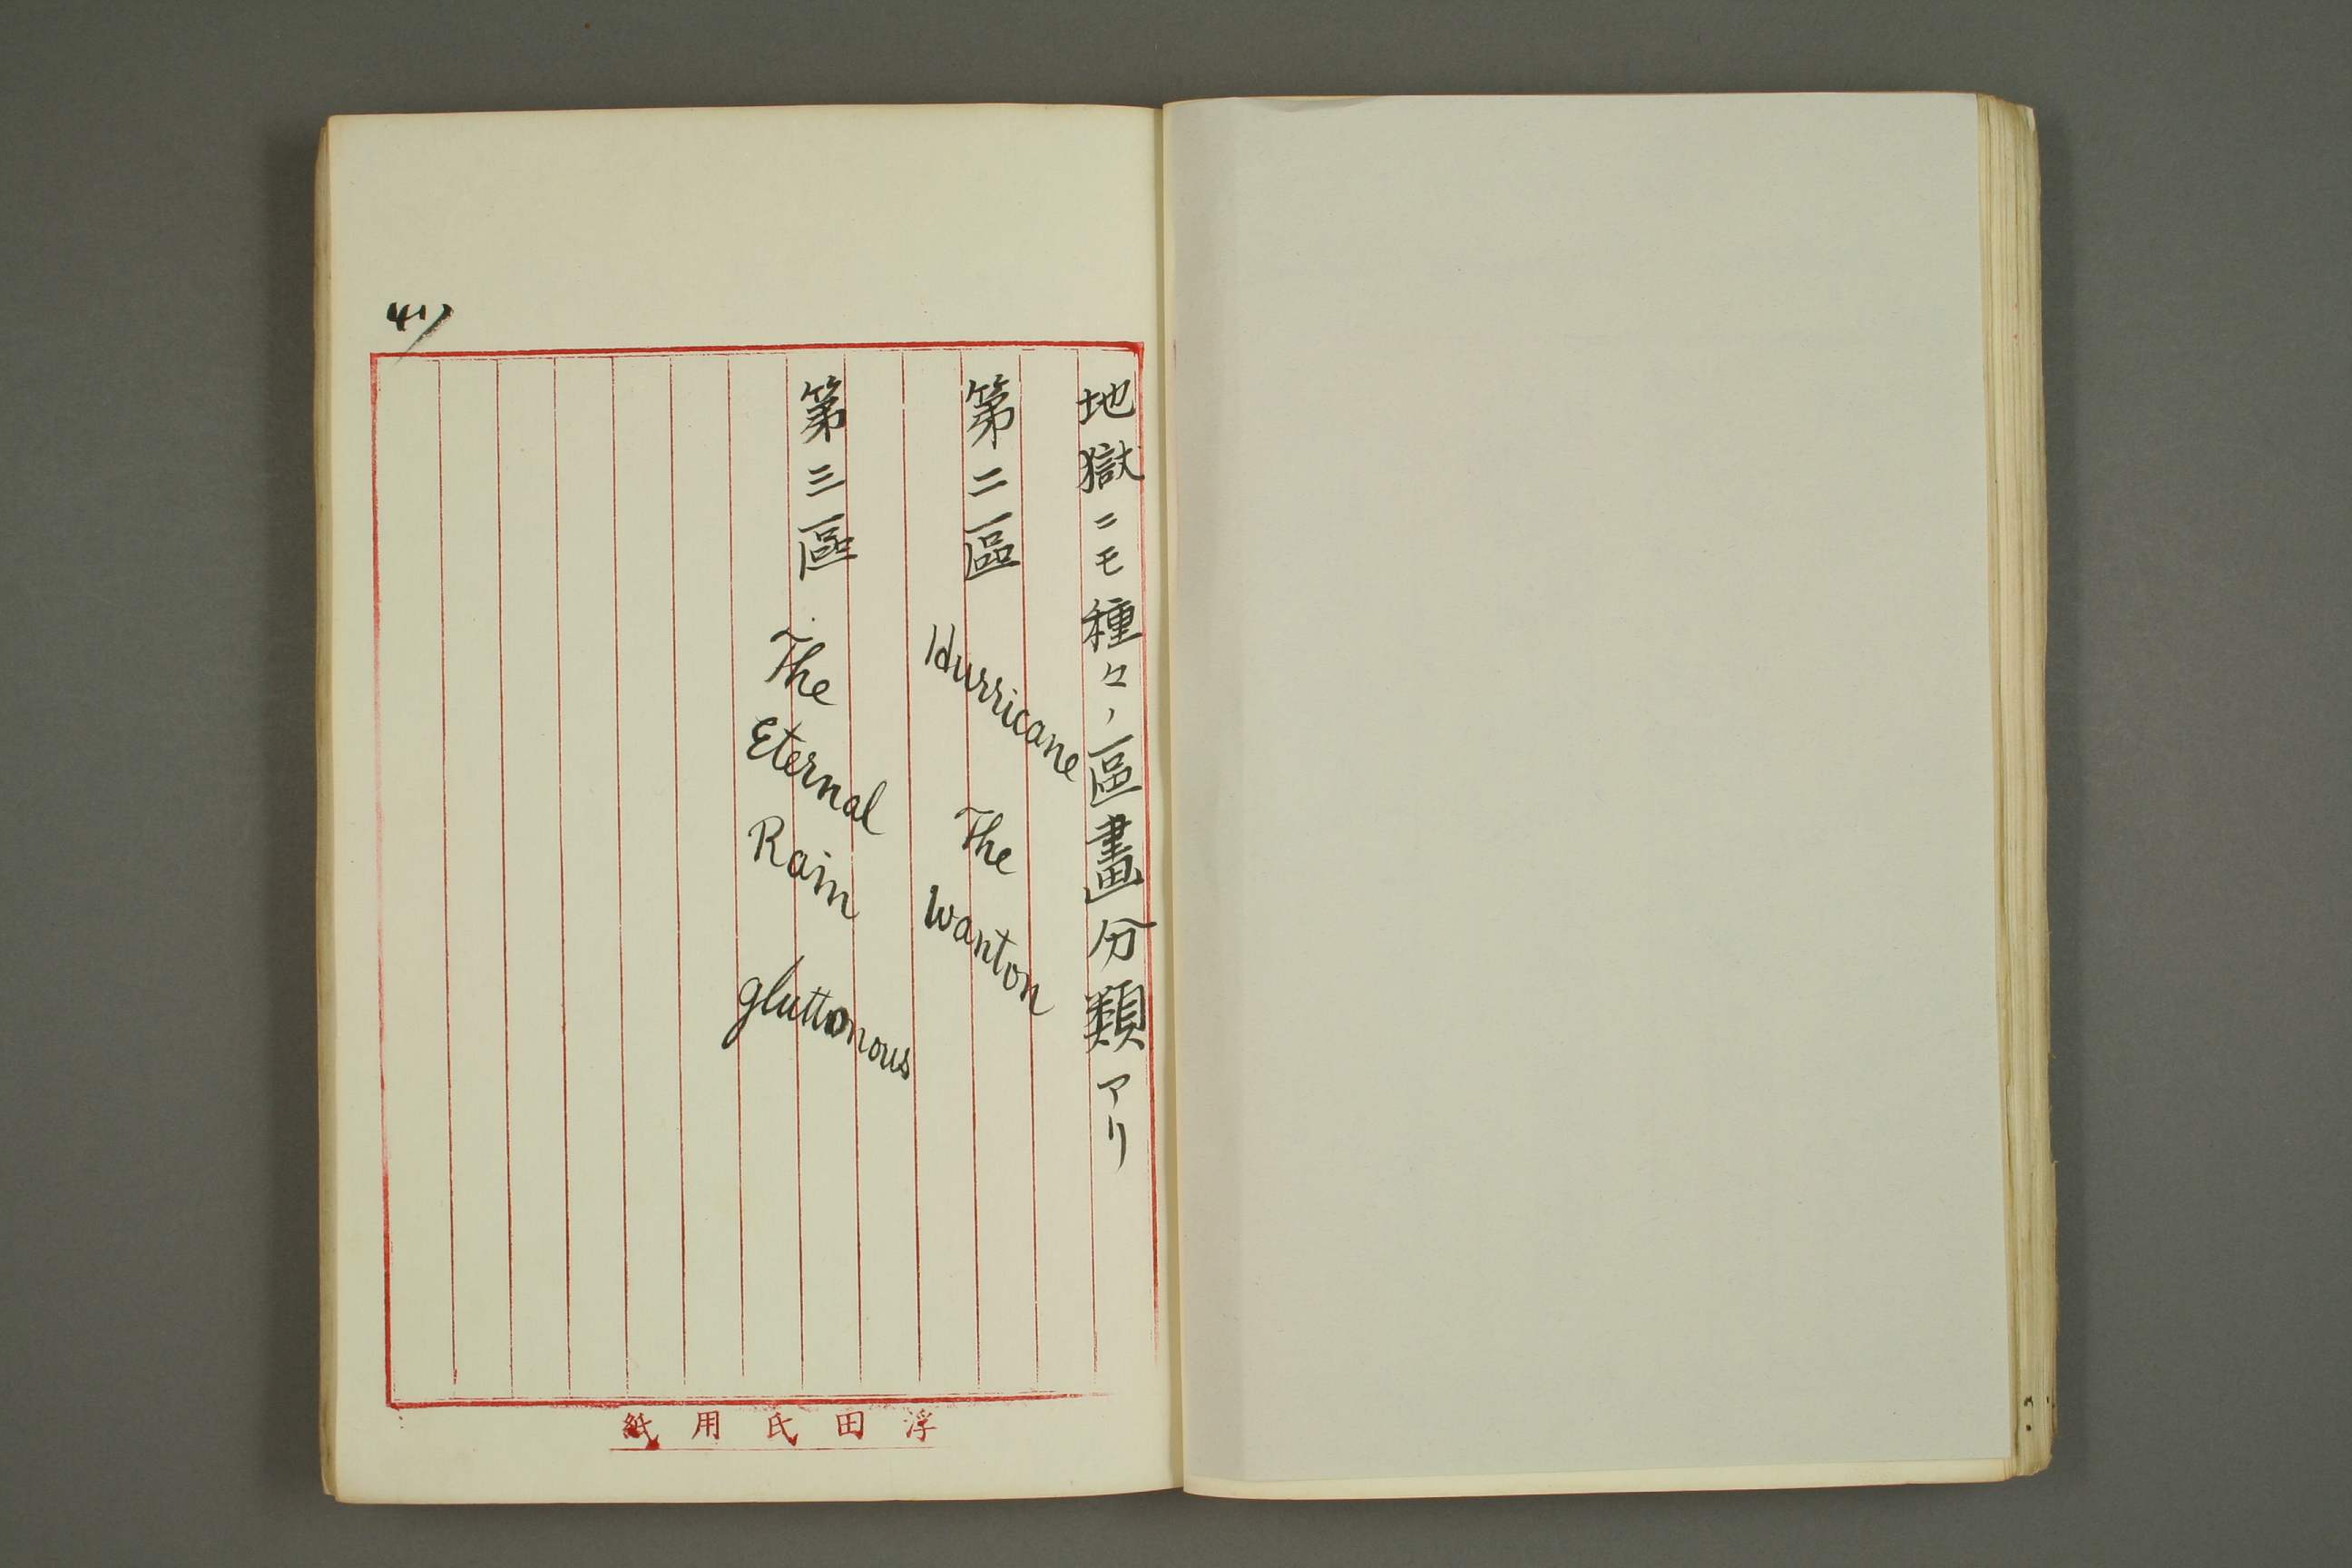 地獄ニモ種々ノ區畫分類アリ
第二區 Hurricane The Wanton
第三區 The Eternal Rain gluttonous
41
浮田氏用紙